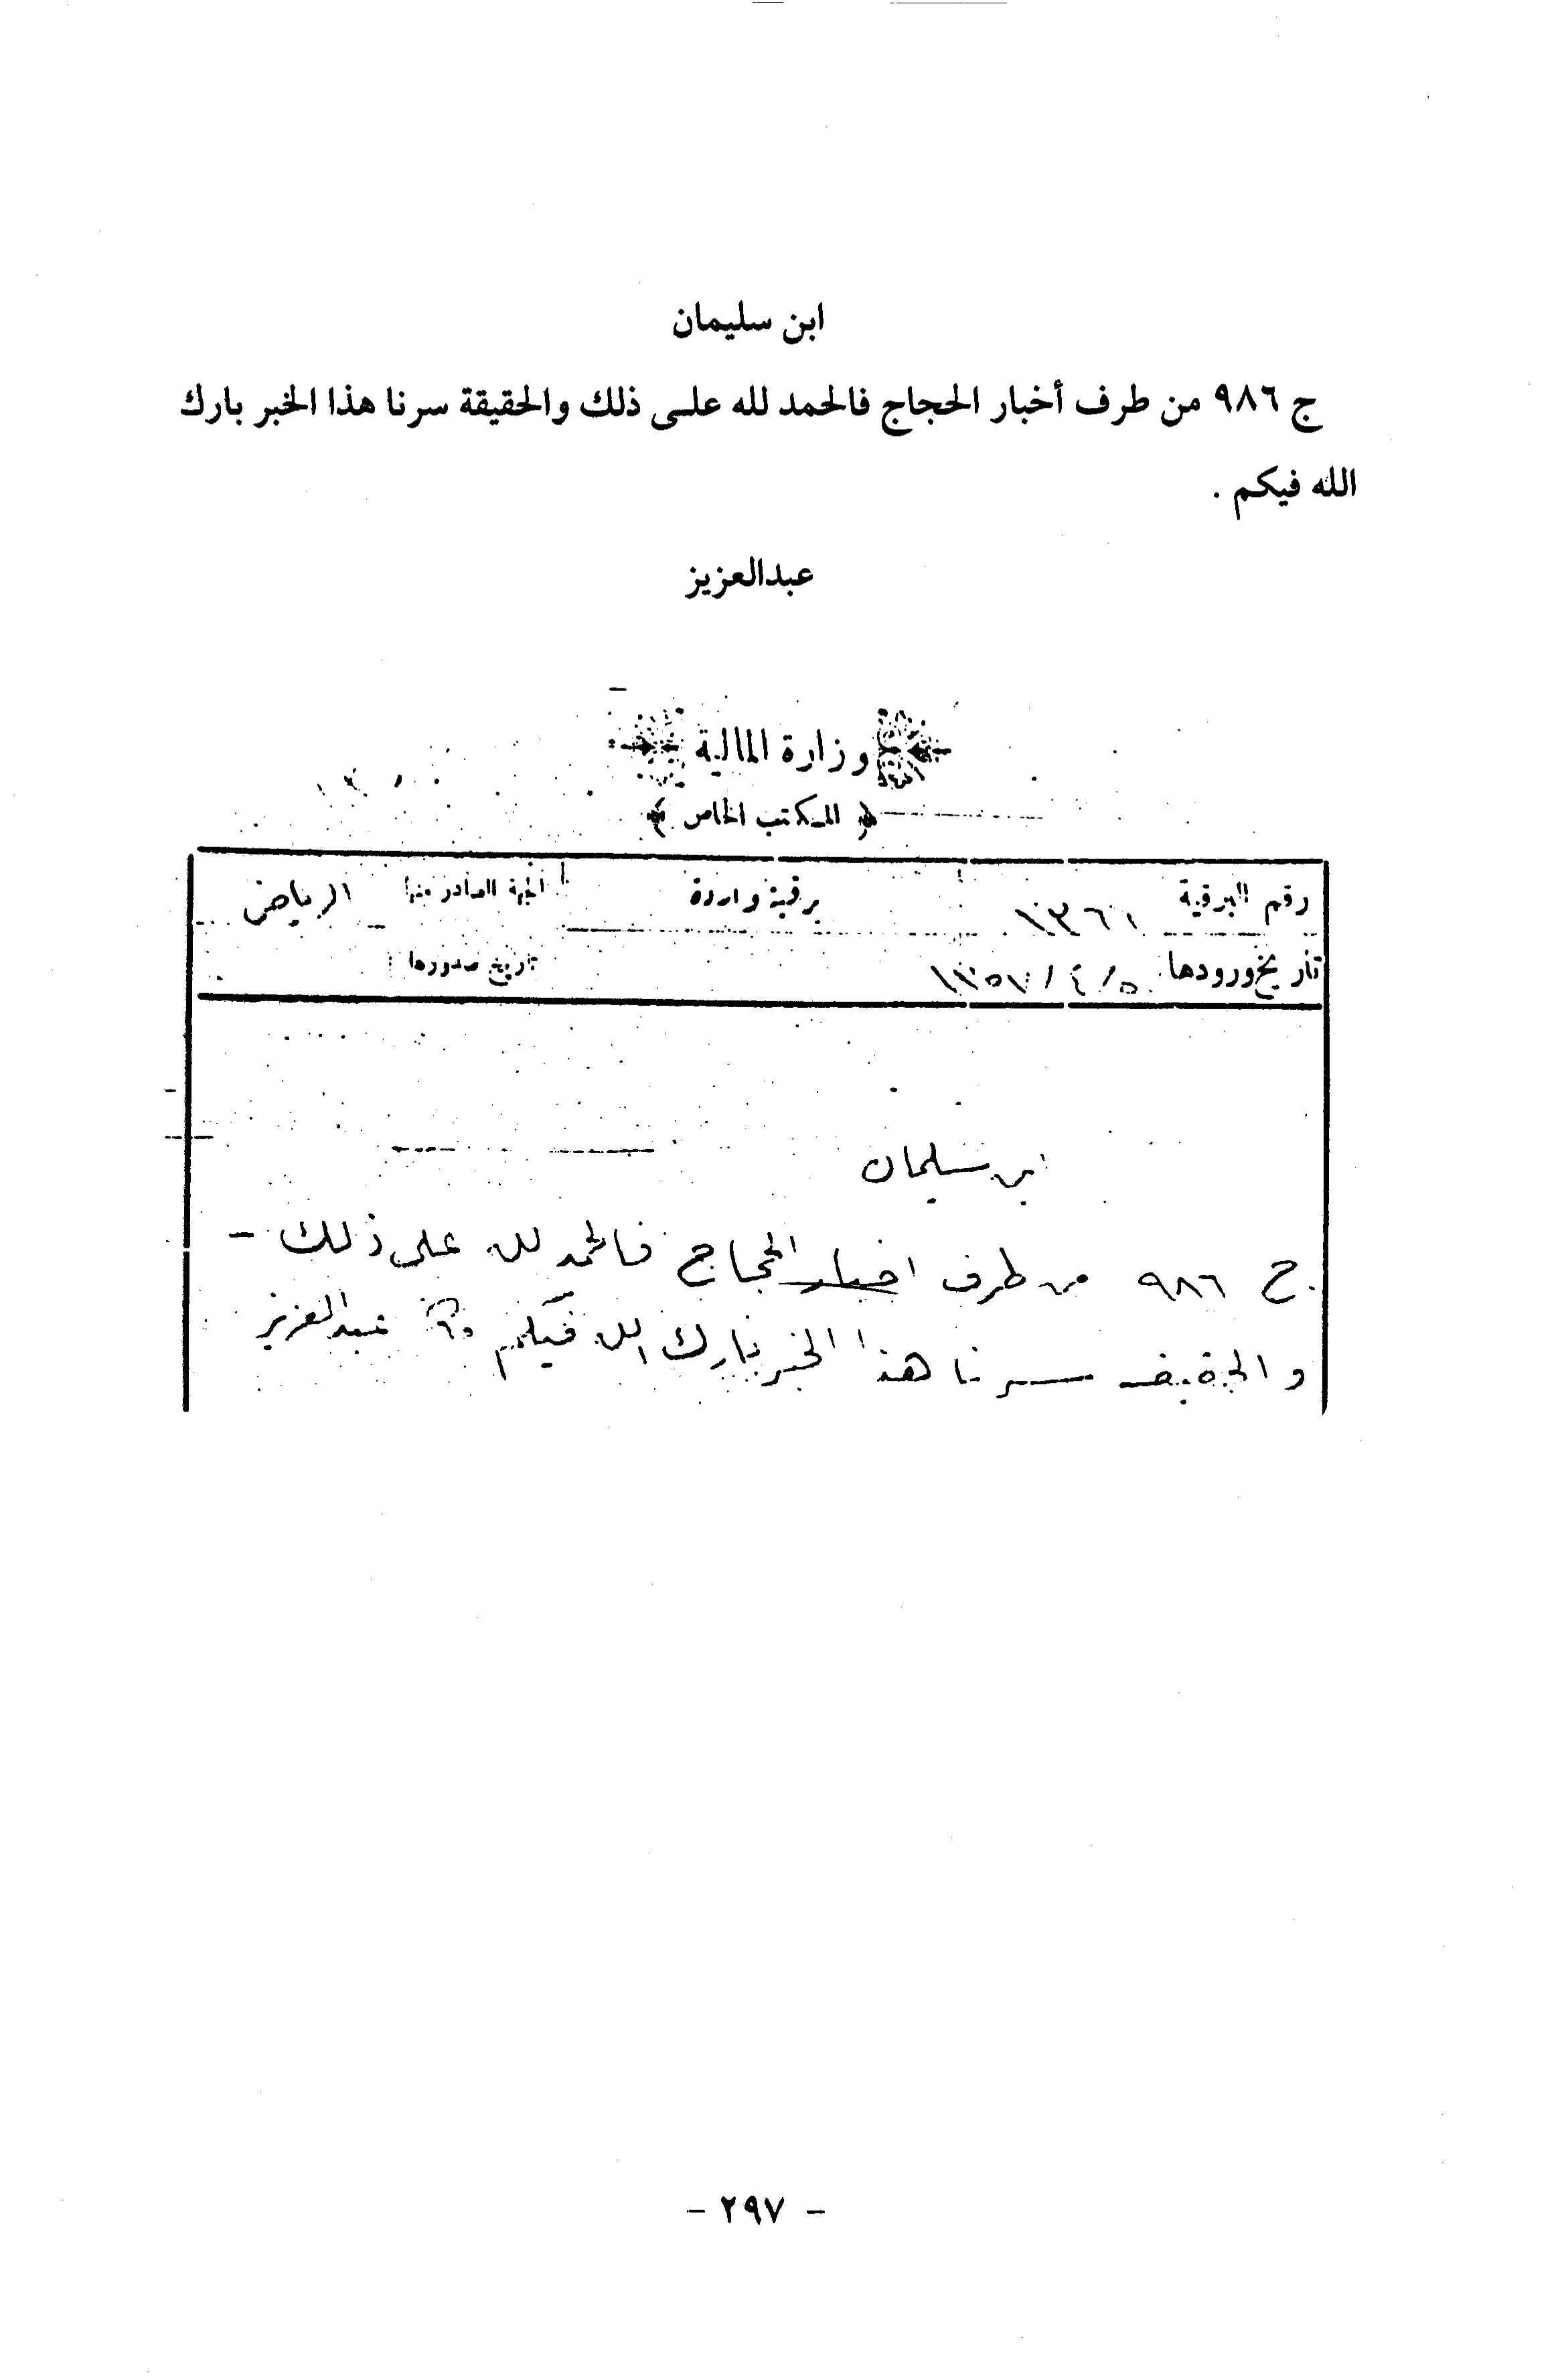 ابن سليمان
ج ٩٨٦ من طرف أخبار الحجاج فالحمد لله على ذلك والحقيقة سرنا هذا الخبر بارك
الله فيكم .
عبدالعزيز
وزارة المالية
﴿ المكتب الخاص ﴾
رقم البرقية ١٣٦١ برقية واردة الجهة الصادر منها الرياض
تاريخ ورودها ٥ / ٤ / ١٣٥٧ تاريخ صدورها :
ابن سليمان
ج ٩٨٦ من طرف اخبار الحجاج فالحمد لله على ذلك -
والحقيقة سرنا هذا الخبر بارك الله فيكم عبدالعزيز
- ٢٩٧ -